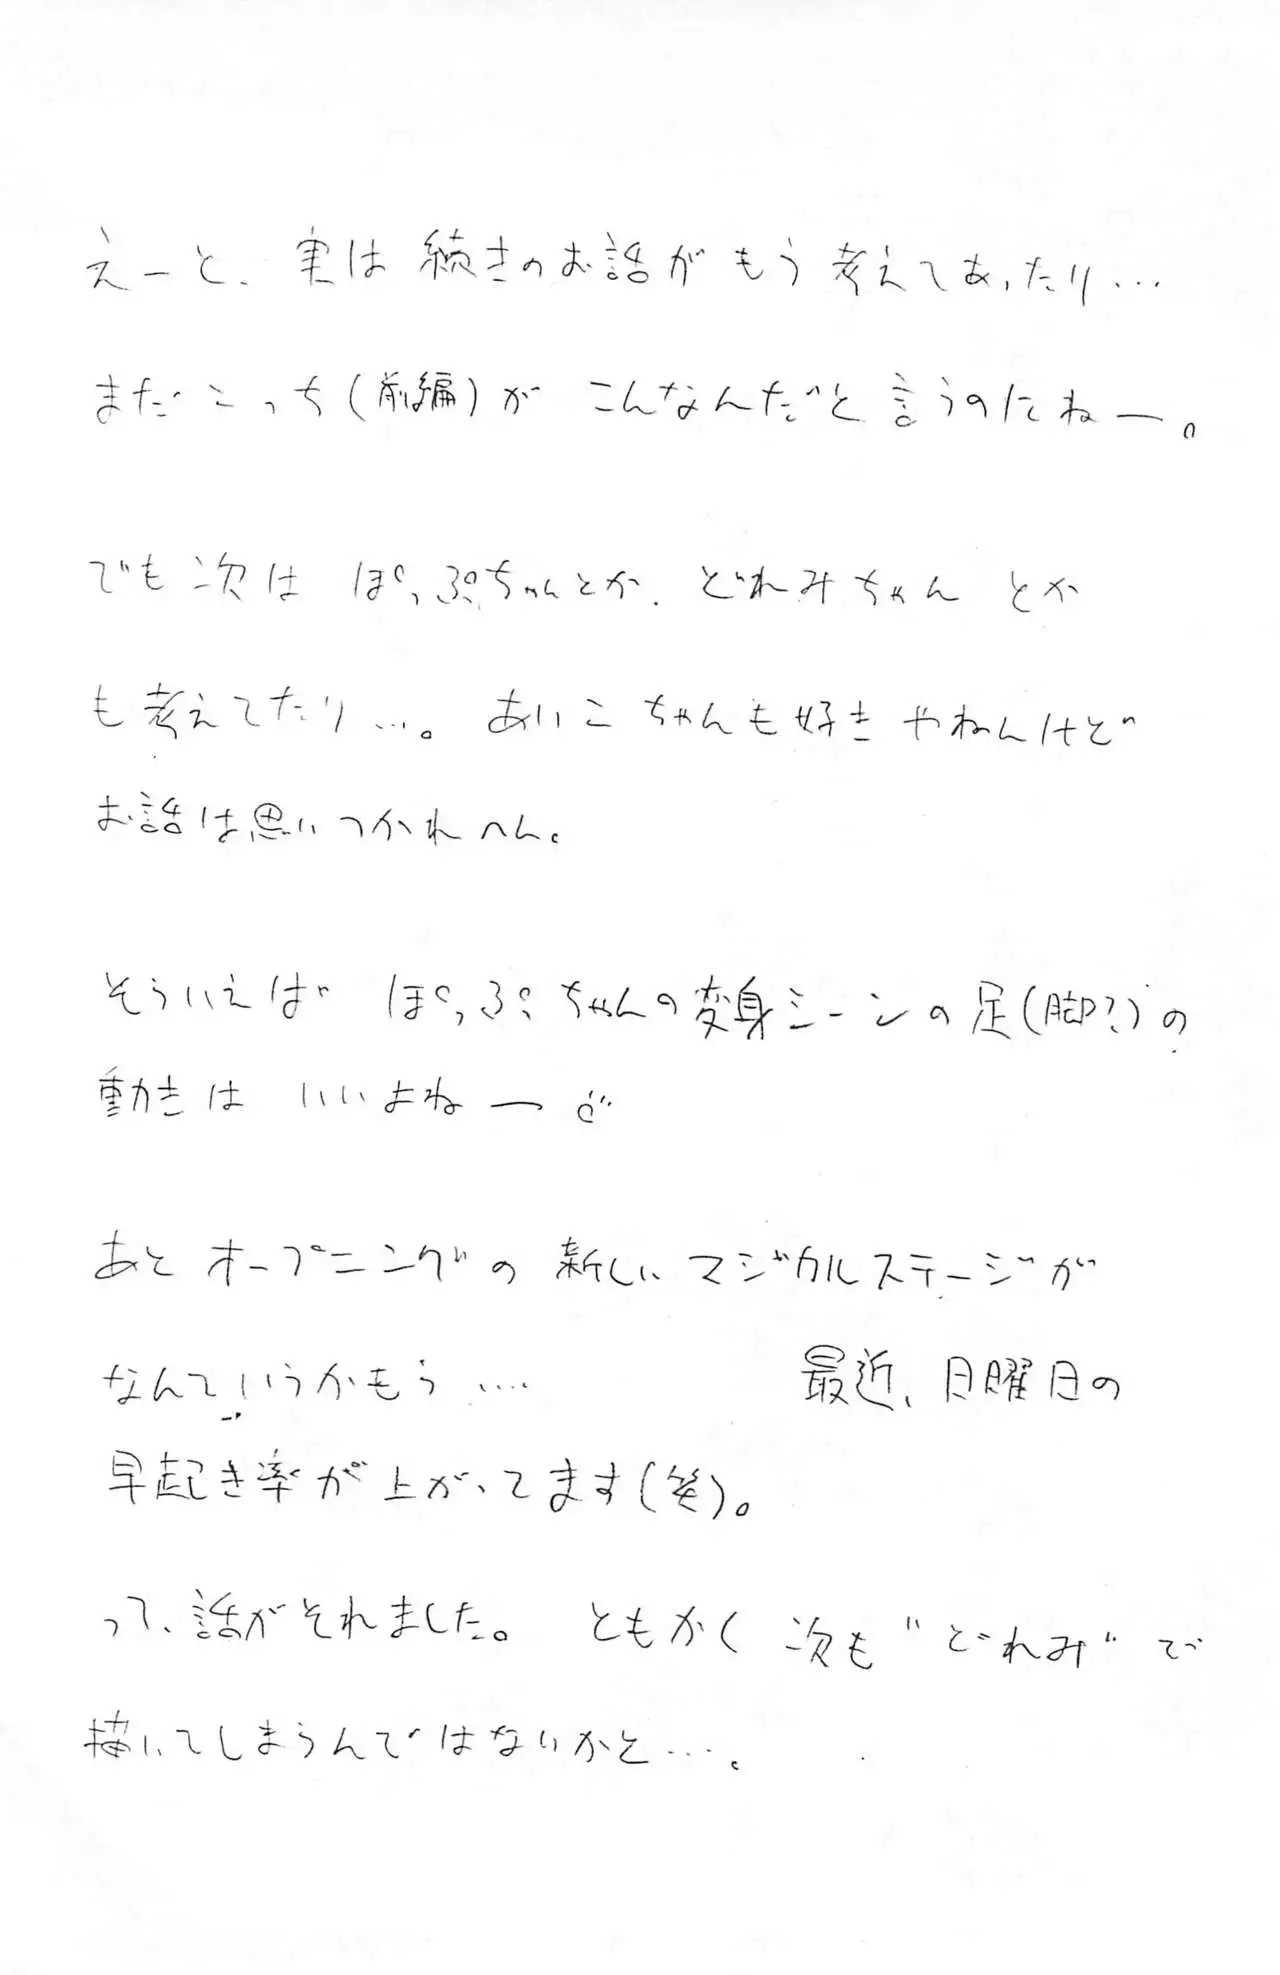 えーと、実は続きのお話がもう考えてあったり…
まだこっち(前編)がこんなんだと言うのにねー。
でも次は ぽっぷちゃんとか、どれみちゃんとか
も考えてたり…。 あいこちゃんも好きやねんけど
お話は思いつかれへん。
そういえば ぽっぷちゃんの変身シーンの足(脚?)の
動きは いいよねー。
あとオープニングの新しいマジカルステージが
なんていうかもう…. 最近、日曜日の
早起き率が上がってます(笑)。
って、話がそれました。 ともかく次も"どれみ"で
描いてしまうんではないかと…。